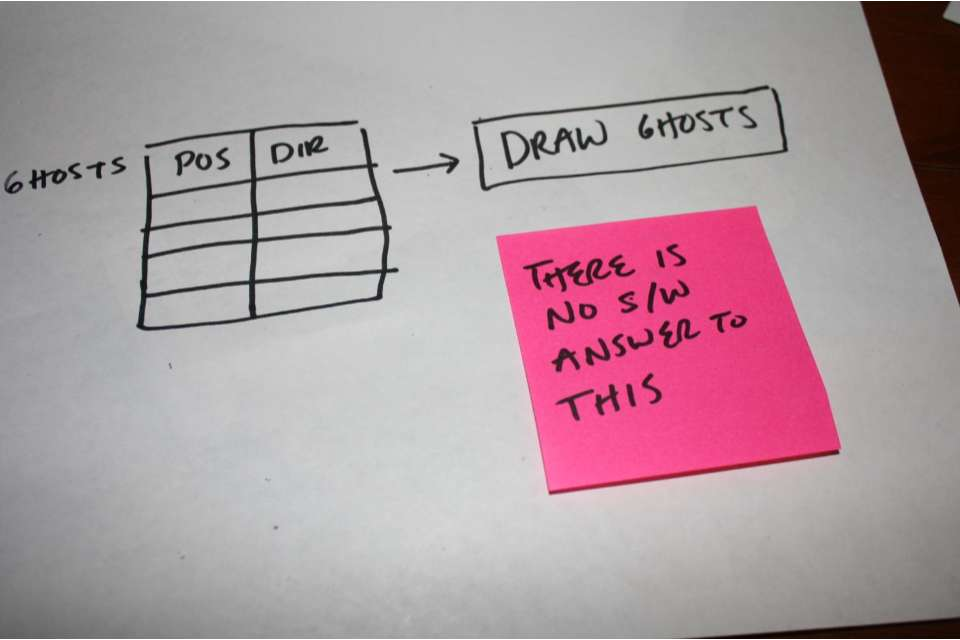 GHOSTS
POS DIR
DRAW GHOSTS
THERE IS
NO S/W
ANSWER TO
THIS